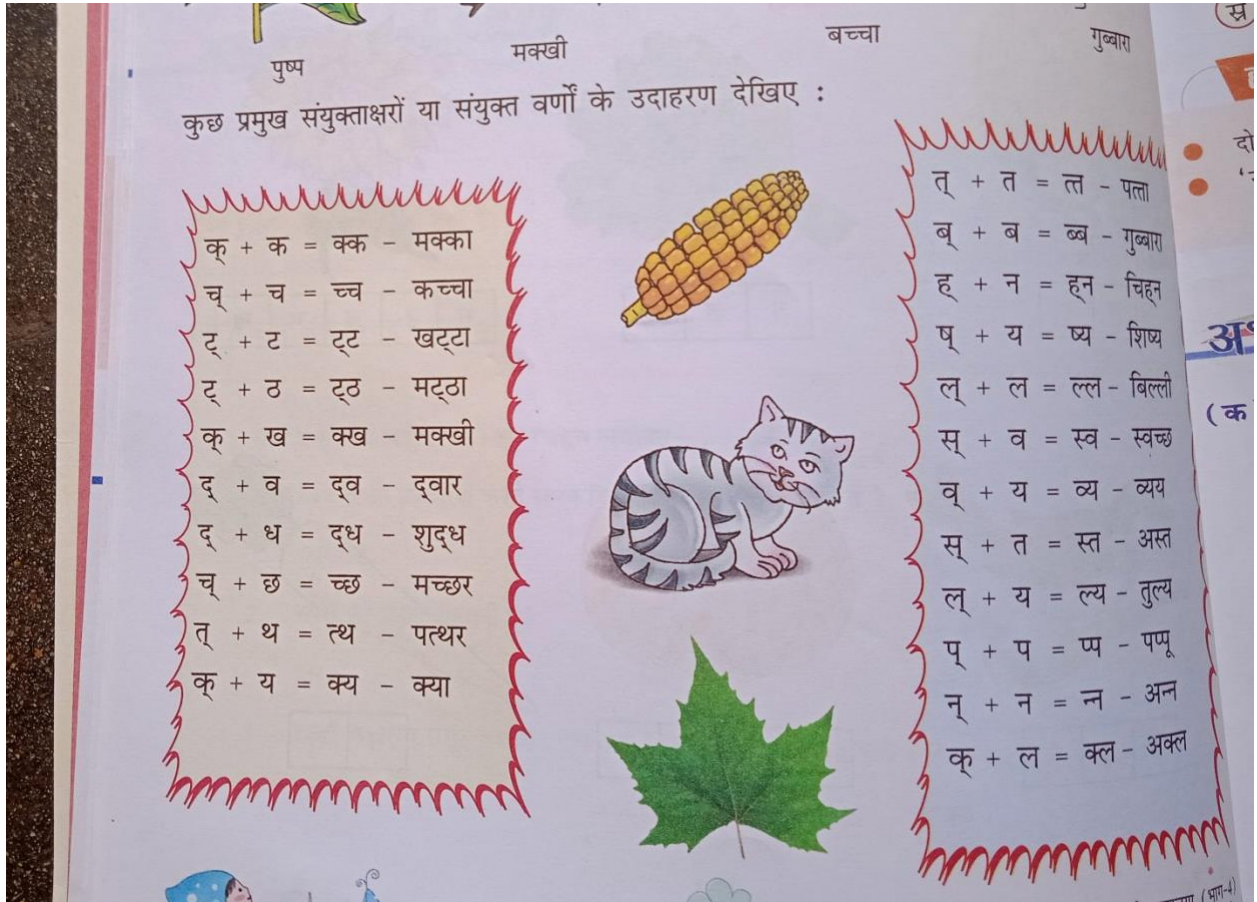 पुष्प
मक्खी
बच्चा
गुब्बारा
कुछ प्रमुख संयुक्ताक्षरों या संयुक्त वर्णों के उदाहरण देखिए :
क् + क = क्क - मक्का
च् + च = च्च - कच्चा
ट् + ट = ट्‌ट - खट्‌टा
ट् + ठ = ट्‌ठ - मट्‌ठा
क् + ख = क्ख - मक्खी
द् + व = द्‌व - द्‌वार
द् + ध = द्‌ध - शुद्‌ध
च् + छ = च्छ - मच्छर
त् + थ = त्थ - पत्थर
क् + य = क्य - क्या
त् + त = त्त - पत्ता
ब् + ब = ब्ब - गुब्बारा
ह् + न = ह्‌न - चिह्‌न
ष् + य = ष्य - शिष्य
ल् + ल = ल्ल - बिल्ली
स् + व = स्व - स्वच्छ
व् + य = व्य - व्यय
स् + त = स्त - अस्त
ल् + य = ल्य - तुल्य
प् + प = प्प - पप्पू
न् + न = न्न - अन्न
क् + ल = क्ल - अक्ल
(भाग-4)
(क